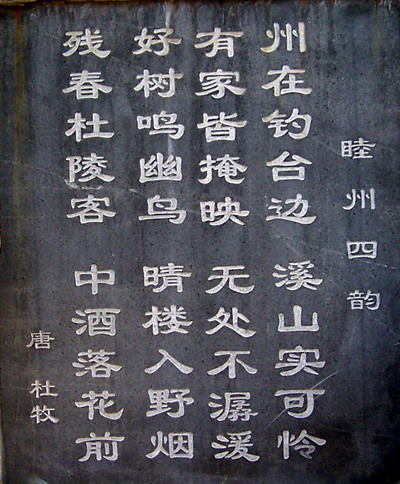 睦州四韵
州在钓台边 溪山实可怜
有家皆掩映 无处不潺湲
好树鸣幽鸟 晴楼入野烟
残春杜陵客 中酒落花前
唐 杜牧